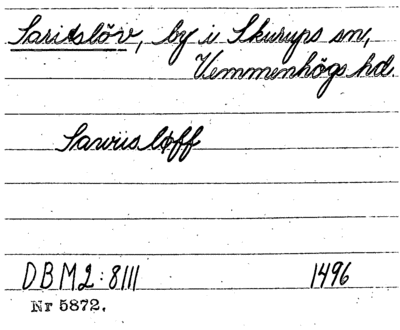 Saridslöv, by i Skurups sn,
Vemmenhögs hd.
Sawris løff
DBM2:8111 1496
Nr 5872.